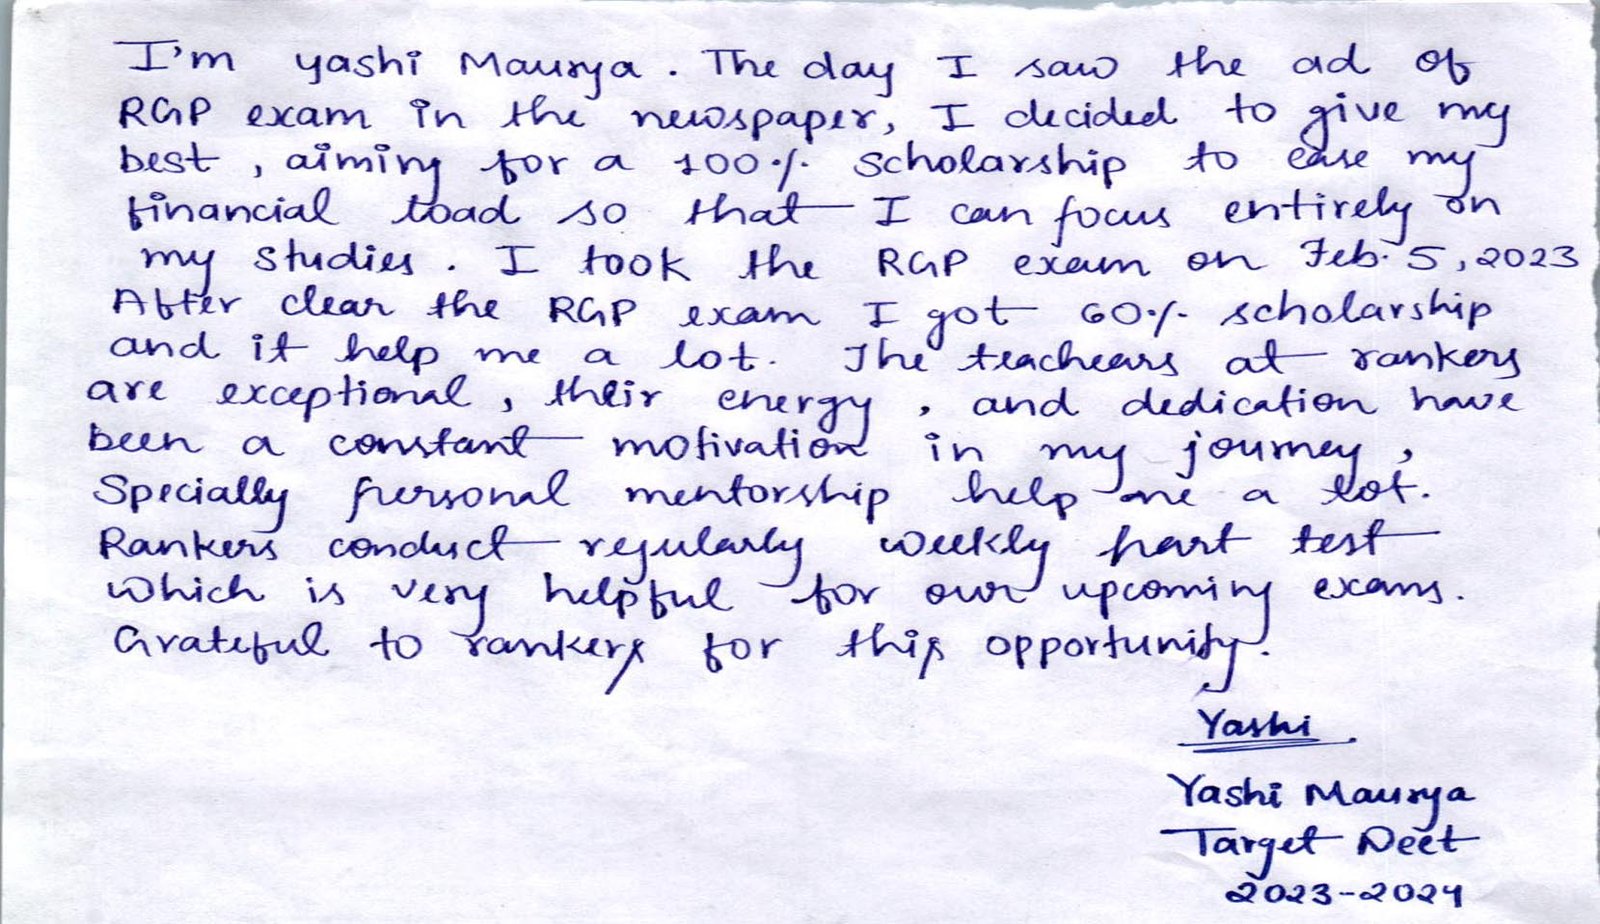 I'm yashi Maurya. The day I saw the ad of
RGP exam in the newspaper, I decided to give my
best, aiming for a 100% scholarship to ease my
financial load so that I can focus entirely on
my studies. I took the RGP exam on Feb. 5, 2023
After clear the RGP exam I got 60% scholarship
and it help me a lot. The teachears at rankers
are exceptional, their energy, and dedication have
been a constant motivation in my journey,
Specially personal mentorship help me a lot.
Rankers conduct regularly weekly part test
which is very helpful for our upcoming exams.
Grateful to rankers for this opportunity.
Yashi.
Yashi Maurya
Target Neet
2023-2024